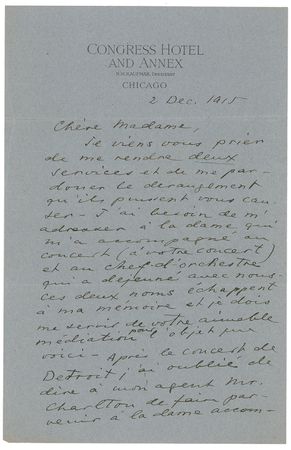 CONGRESS HOTEL
AND ANNEX
N.M. KAUFMAN, PRESIDENT
CHICAGO
2 Dec. 1915
Chère Madame,
Je viens vous prier
de me rendre deux
services et de me par-
donner le dérangement
qu'ils peuvent vous cau-
ser - J'ai besoin de m'
adresser à la dame qui
m'a accompagné au
concert, (à votre concert)
et au chef d'orchestre
qui a déjeuné avec nous -
ces deux noms échappent
à ma mémoire et je dois
me servir de votre aimable
médiation pour l'objet que
voici - Après le concert de
Detroit, j'ai oublié de
dire à mon agent Mr.
Charlton de faire par-
venir à la dame accom-